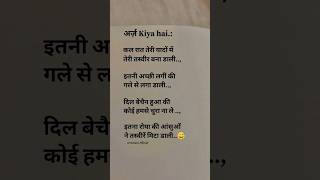 अर्ज़ Kiya hai.:
कल रात तेरी यादों में
तेरी तस्वीर बना डाली..,
इतनी अच्छी लगीं की
गले से लगा डाली..,
दिल बेचैन हुआ की
कोई हमसे चुरा ना ले ..,
इतना रोया की आंसुओं
ने तस्वीरें मिटा डाली..😄